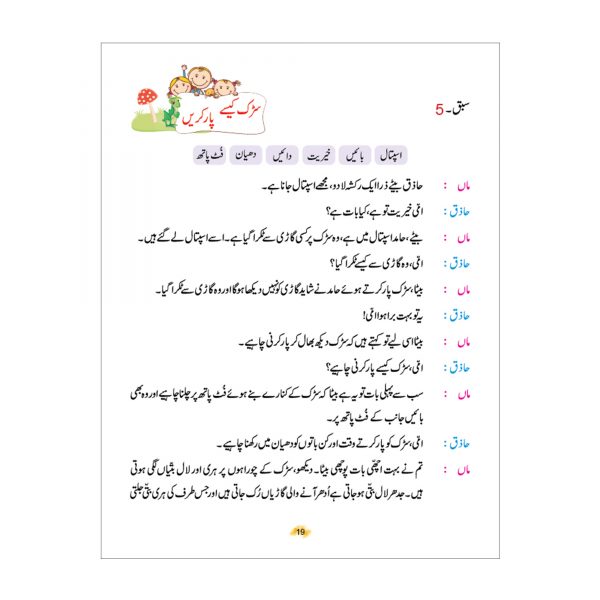 سبق۔ 5
سڑک کیسے
پار کریں
اسپتال بائیں خیریت دائیں دھیان فُٹ پاتھ
ماں : حاذق بیٹے ذرا ایک رکشہ لا دو، مجھے اسپتال جانا ہے۔
حاذق : امّی خیریت تو ہے، کیا بات ہے؟
ماں : بیٹے، حامد اسپتال میں ہے، وہ سڑک پر کسی گاڑی سے ٹکرا گیا ہے۔ اسے اسپتال لے گئے ہیں۔
حاذق : امّی، وہ گاڑی سے کیسے ٹکرا گیا؟
ماں : بیٹا، سڑک پار کرتے ہوئے حامد نے شاید گاڑی کو نہیں دیکھا ہوگا اور وہ گاڑی سے ٹکرا گیا۔
حاذق : یہ تو بہت برا ہوا امّی!
ماں : بیٹا اسی لیے تو کہتے ہیں کہ سڑک دیکھ بھال کر پار کرنی چاہیے۔
حاذق : امّی، سڑک کیسے پار کرنی چاہیے؟
ماں : سب سے پہلی بات تو یہ ہے بیٹا کہ سڑک کے کنارے بنے ہوئے فُٹ پاتھ پر چلنا چاہیے اور وہ بھی
بائیں جانب کے فُٹ پاتھ پر۔
حاذق : امّی، سڑک کو پار کرتے وقت اور کن باتوں کو دھیان میں رکھنا چاہیے۔
ماں : تم نے بہت اچھّی بات پوچھی بیٹا۔ دیکھو، سڑک کے چوراہوں پر ہری اور لال بتّیاں لگی ہوتی
ہیں۔ جدھر لال بتّی ہو جاتی ہے اُدھر آنے والی گاڑیاں رُک جاتی ہیں اور جس طرف کی ہری بتّی جلتی
19